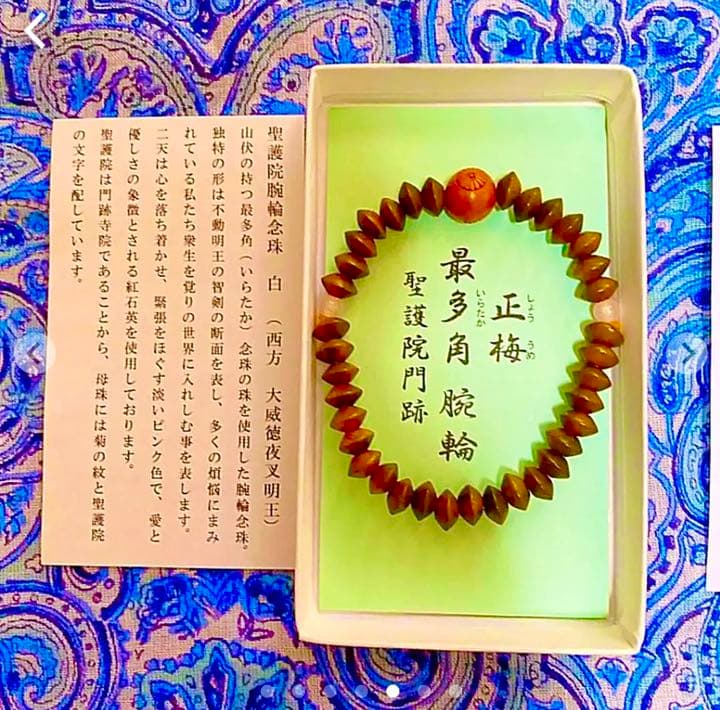 正梅
しょう うめ
最多角腕輪
いらたか
聖護院門跡
聖護院腕輪念珠　白　(西方　大威徳夜叉明王)
山伏の持つ最多角(いらたか)念珠の珠を使用した腕輪念珠。
独特の形は不動明王の智剣の断面を表し、多くの煩悩にまみ
れている私たち衆生を覚りの世界に入れしむ事を表します。
二天は心を落ち着かせ、緊張をほぐす淡いピンク色で、愛と
優しさの象徴とされる紅石英を使用しております。
聖護院は門跡寺院であることから、母珠には菊の紋と聖護院
の文字を配しています。